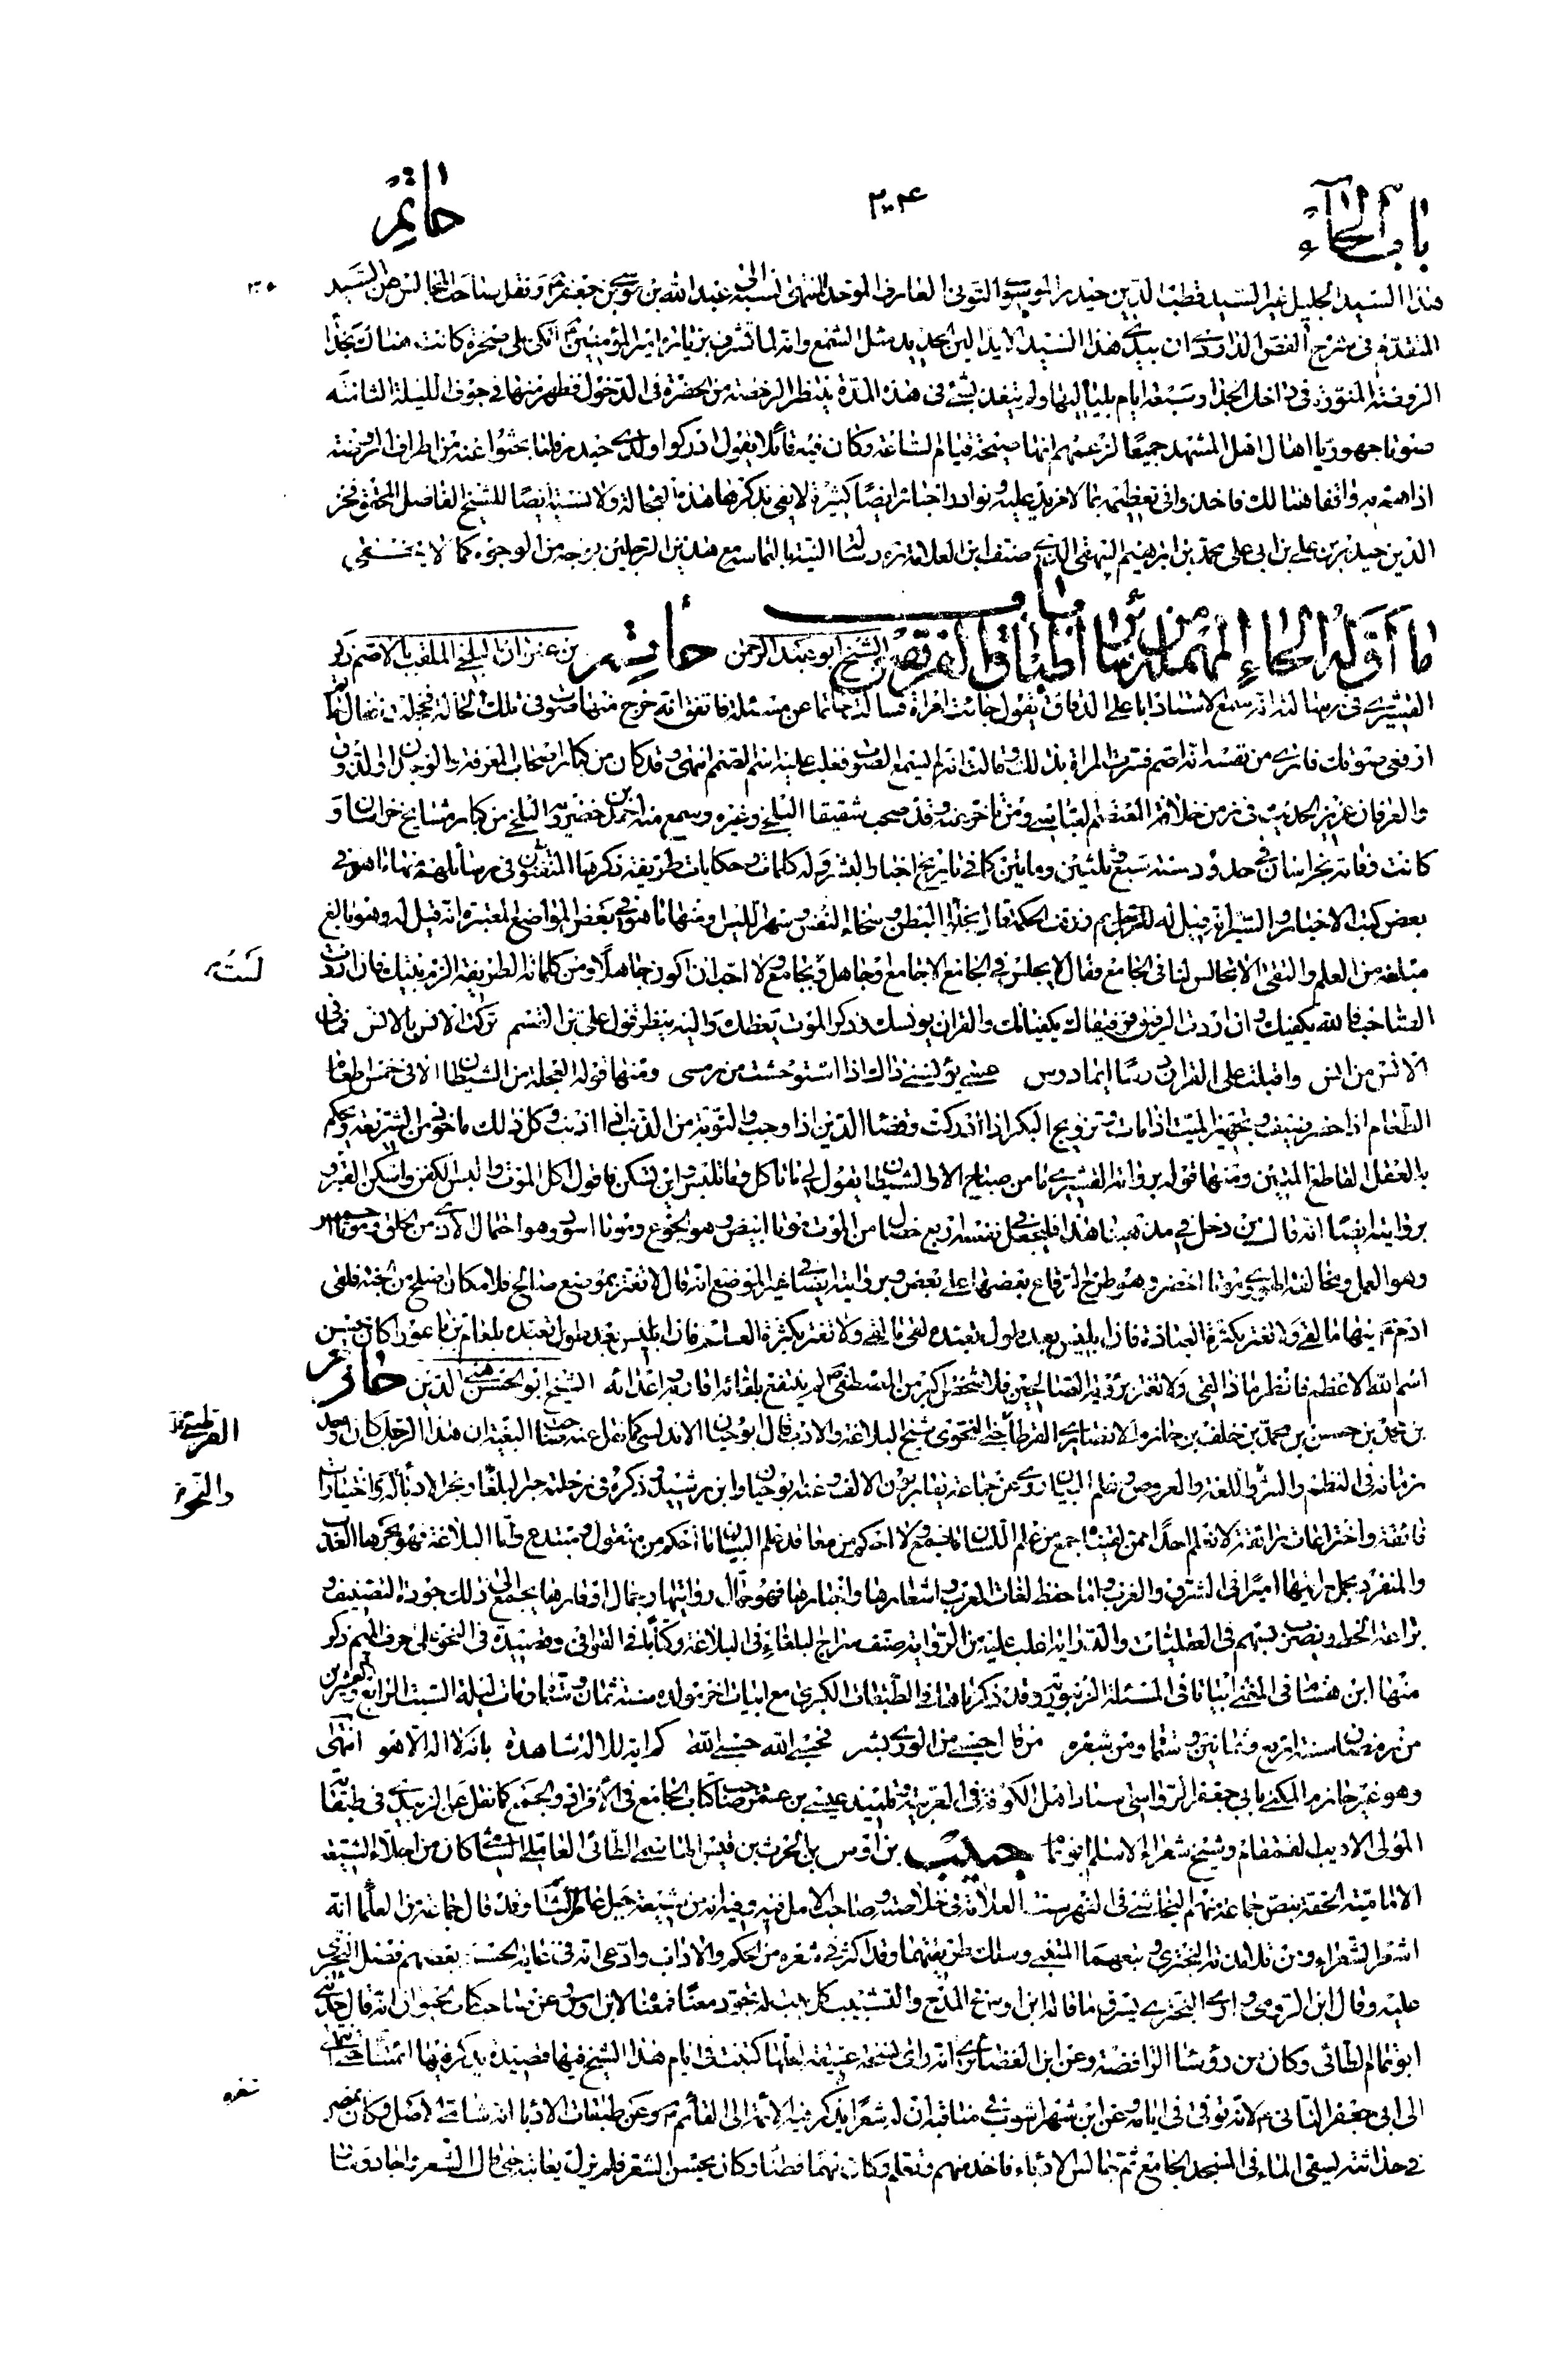 باب الحاء
٢٠٤
حاتم
هذا السيد الجليل غير السيد قطب الدين حيدر الموسوي التوني العارف الموحد المنتهى نسبه الى عبد الله بن موسى بن جعفر ع ونقل صاحب المجالس عن السيد
المتقدم في شرح الفصّ الداودي ان بيدي هذا السيد الايد الين الحديد مثل الشمع وانه لما تشرف بزيارة امير المؤمنين ع اتكى على صخرة كانت هناك تجاه
الروضة المنورة في داخل الجدار سبعة ايام بلياليها ولم يتغذ بشيء في هذه المدة ينتظر الرخصة من الحضرة في الدخول فظهر منها في جوف الليلة الثامنة
صوتا جهوريا اهال اهل المشهد جميعا لزعمهم انها صيحة قيام الساعة وكان فيه قائلا يقول ادركوا ولدي حيدر فلما بحثوا عنه من اطراف الروضة
اذا هم به واقفا هنالك فاخذوا في تعظيمه بما لا مزيد عليه ونوادر اخباره ايضا كثيرة لا يفي بذكرها هذه العجالة ولا نسبة ايضا للشيخ الفاضل المحقق فخر
الدين حيدر بن علي بن ابي علي محمد بن ابراهيم البيهقي الذي صنف ابن العلامة ره رسالة النية بالتماسه مع هذين الرجلين بوجه من الوجوه كما لا يخفى
باب ما اوله الحاء المهملة من سائر اطباق الفريقين الشيخ ابو عبد الرحمن حاتم بن عنوان البلخي الملقب بالاصم ذكر
القشيري في رسالته انه سمع الاستاذ ابا علي الدقاق يقول جائت امرأة فسالت حاتما عن مسئلة فاتفق انه خرج منها صوت في تلك الحالة فخجلت فقال حاتم
ارفعي صوتك فارى من نفسه انه اصم فسرت المرأة بذلك وقالت انه لم يسمع الصوت فغلب عليه اسم الصمم انتهى وقد كان من كبار اصحاب المعرفة والوجدان اولي الذوق
والعرفان عزيز الحديث في زمن خلافة المعتصم العباسي ومن تأخر عنه وقد صحب شقيقا البلخي وغيره وسمع منه احمد بن خضرويه البلخي من كبار مشايخ خراسان و
كانت وفاته بخراسان في حدود سنة سبع وثلثين ومائتين كما في تاريخ اخبار البشر وله كلمات وحكايات طريفة ذكرها المتقنون في رسائلهم فمنها ما هو في
بعض كتب الاخبار والسير انه قيل له للرجل بم رزقت الحكمة قال بخلاء البطن وسخاء النفس وسهر الليل ومنها ما هو في بعض المواضع المعتبرة انه قيل له وهو بالغ
مبلغه من العلم والتقى الا تجالس لنا في الجامع فقال لا يجلس في الجامع الا جامع او جاهل ولست بجامع ولا احب ان اكون جاهلا ومن كلماته الطريفة الزم بيتك فان اردت
لست
الصاحب فالله يكفيك وان اردت الرفيق فرفيقاك يكفيانك والقرآن يونسك وذكر الموت يعظك واليه ينظر قول علي بن القسم تركت الانس بالانس فما في
الانس من انس واقبلت على القرآن درسا ايما درس عسى يؤنسني ذاك اذا استوحشت من رمسي ومنها قوله العجلة من الشيطان الا في خمس اطعام
الطعام اذا حضر ضيف وتجهيز الميت اذا مات وتزويج البكر اذا ادركت وقضاء الدين اذا وجب والتوبة من الذنب اذا اذنب وكل ذلك ماخوذ من الشريعة وبحكم
بالعقل القاطع المبين ومنها قوله برواية القشيري ما من صباح الا والشيطان يقول لي ما تاكل وما تلبس واين تسكن فاقول اكل الموت والبس الكفن واسكن القبر و
بروايته ايضا انه قال من دخل في مذهبنا هذا فليجعل في نفسه اربع خصال من الموت موتا ابيض وهو الجوع وموتا اسود وهو احتمال الاذى من الخلق وموتا احمر
وهو العمل ومخالفة الهوى وموتا اخضر وهو طرح الرقاع بعضها على بعض وبروايته ايضا في غير الموضع انه قال لا تغتر بموضع صالح فلا مكان اصلح من الجنة فلقى
ادم ع فيها ما لقى ولا تغتر بكثرة العبادة فان ابليس بعد طول تعبده لقى ما لقى ولا تغتر بكثرة العلم فان بلعم بن باعورا كان يحسن
اسم الله الاعظم فانظر ماذا لقى ولا تغتر برؤية الصالحين فلا شخص اكبر من المصطفى ص لم ينتفع بلقائه اقاربه واعدائه الشيخ ابو الحسن هنيء الدين حازم
بن محمد بن حسن بن محمد بن خلف بن حازم الانصاري القرطاجني النحوي شيخ البلاغة والادب قال ابو حيان الاندلسي كما نقل عنه صاحب البغية ان هذا الرجل كان اوحد
القرطبي
زمانه في النظم والنثر واللغة والعروض وعلم البيان روى عن جماعة يقاربون الالف وعنه ابو حيان وابن رشيد وذكره في رحلته حبر البلغاء وبحر الادباء ذو اختيارات
والنحو
فائقة واختراعات رائقة لا نعلم احدا ممن لقيناه جمع من علم اللسان ما جمع ولا احكم من معاقد علم البيان ما احكم من منقول ومبتدع واما البلاغة فهو بحرها العذب
والمنفرد بحمل رايتها اميرا في الشرق والغرب واما حفظ لغات العرب واشعارها واخبارها فهو حمّال روايتها وحمّال اوقارها يجمع الى ذلك جودة التصنيف و
براعة الخط ويضرب بسهم في العقليات والدراية اغلب عليه من الرواية صنف سراج البلغاء في البلاغة وكتابا في القوافي وقصيدة في النحو على حرف الميم ذكر
منها ابن هشام في المغني ابياتا في المسئلة الزنبورية وقد ذكرناها في الطبقات الكبرى مع ابيات اخر مولده سنة ثمان وستمائة ومات ليلة السبت الرابع والعشرين
من رمضان سنة اربع وثمانين وستمائة ومن شعره من قال حسبي من الورى بشر فحسبي الله حسبي الله كم اية للاله شاهدة بانه لا اله الا هو انتهى
وهو غير حازم المكنى بابي جعفر الرواسي استاد اهل الكوفة في العربية وتلميذ عيسى بن عمر صاحب كتاب الجامع في الافراد والجمع كما نقل عن الزبيدي في طبقاته
المولى الاديب القمقام وشيخ شعراء الاسلام ابو تمام حبيب بن اوس بن الحرث بن قيس الحاسمي الطائي العاملي الشامي كان من اجلاء الشيعة
الامامية الحقة بنص جماعة منهم النجاشي في الفهرست العلامة في خلاصته وصاحب الامل فيه وفيه انه من شيعة جبل عامل الشام وقد قال جماعة من العلماء انه
اشعر الشعراء ومن تلامذته البحتري وتبعهما المتنبي وسلك طريقتهما وقد اكثر في شعره من الحكم والاداب وادعى انه في غاية الحسن بعضهم فضل البحتري
عليه وقال ابن الرومي وارى البحتري يسرق ما قاله ابن اوس في المدح والتشبيب كل بيت له تجود معناه فمعناه لابن اوس وعن صاحب كتاب الحيوان انه قال حدثني
ابو تمام الطائي وكان من رؤساء الرافضة وعن ابن الغضائري انه رأى نسخة عتيقة لعلها كتبت في ايام هذا الشيخ فيها قصيدة يذكر فيها ائمتنا حتى انتهى
الى ابي جعفر الثاني ع لانه توفى في ايامه وعن ابن شهراشوب في مناقبه ان له شعرا يذكر فيه الائمة الى القائم ع وعن طبقات الادباء انه شامي الاصل وكان بمصر
شعره
في حداثته يسقى الماء في المسجد الجامع ثم جالس الادباء فاخذ منهم وتعلم وكان فهما فطنا وكان يحسن الشعر فلم يزل يعانيه حتى قال الشعر واجاد وسار